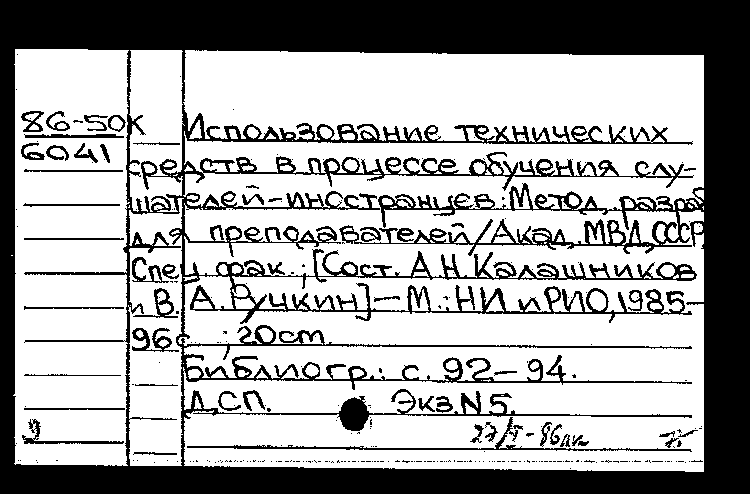 86-50К Использование технических
6041 средств в процессе обучения слу-
шателей-иностранцев: Метод. разраб
для преподавателей/Акад. МВД СССР,
Спец. фак.; [Сост. А.Н.Калашников
и В.А.Ручкин]— М.: НИ и РИО, 1985-
96с. ; 20см.
Библиогр.: с. 92-94.
Д.С.П. Экз.N5.
9 27/I-86